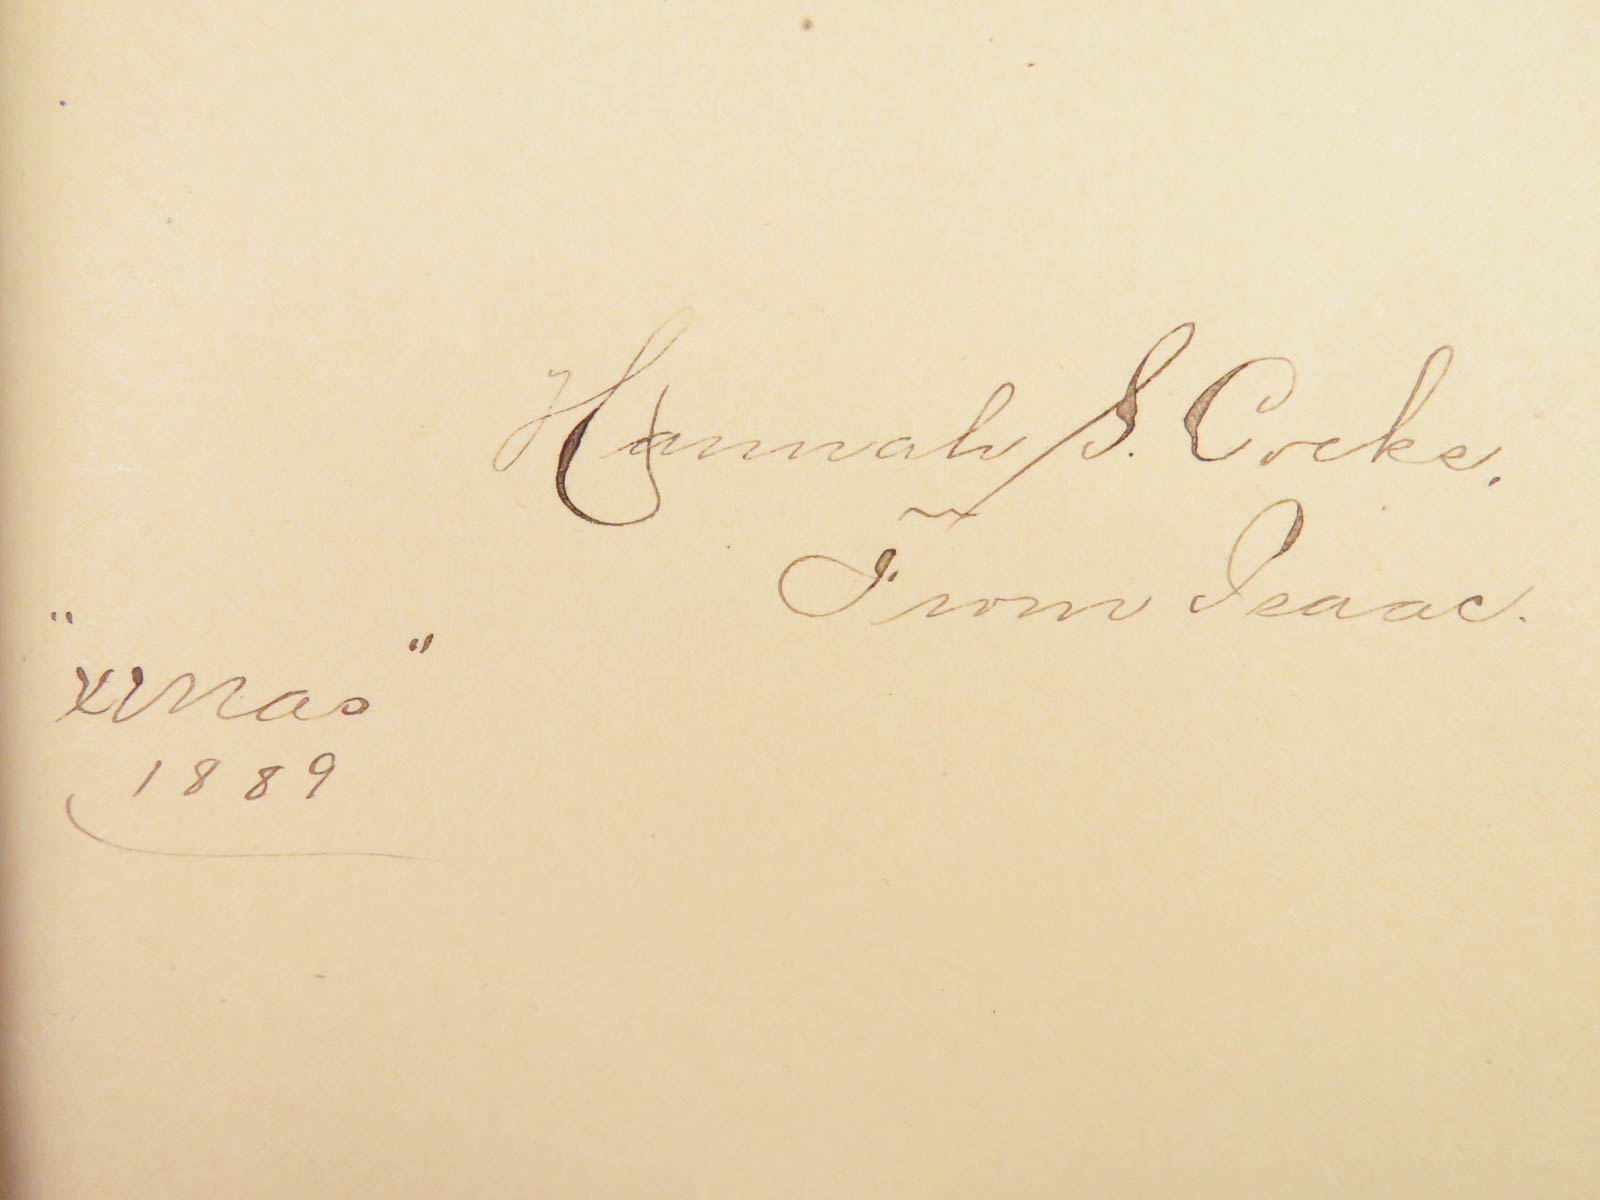 Hannah S. Cocks.
From Isaac.
"Xmas"
1889